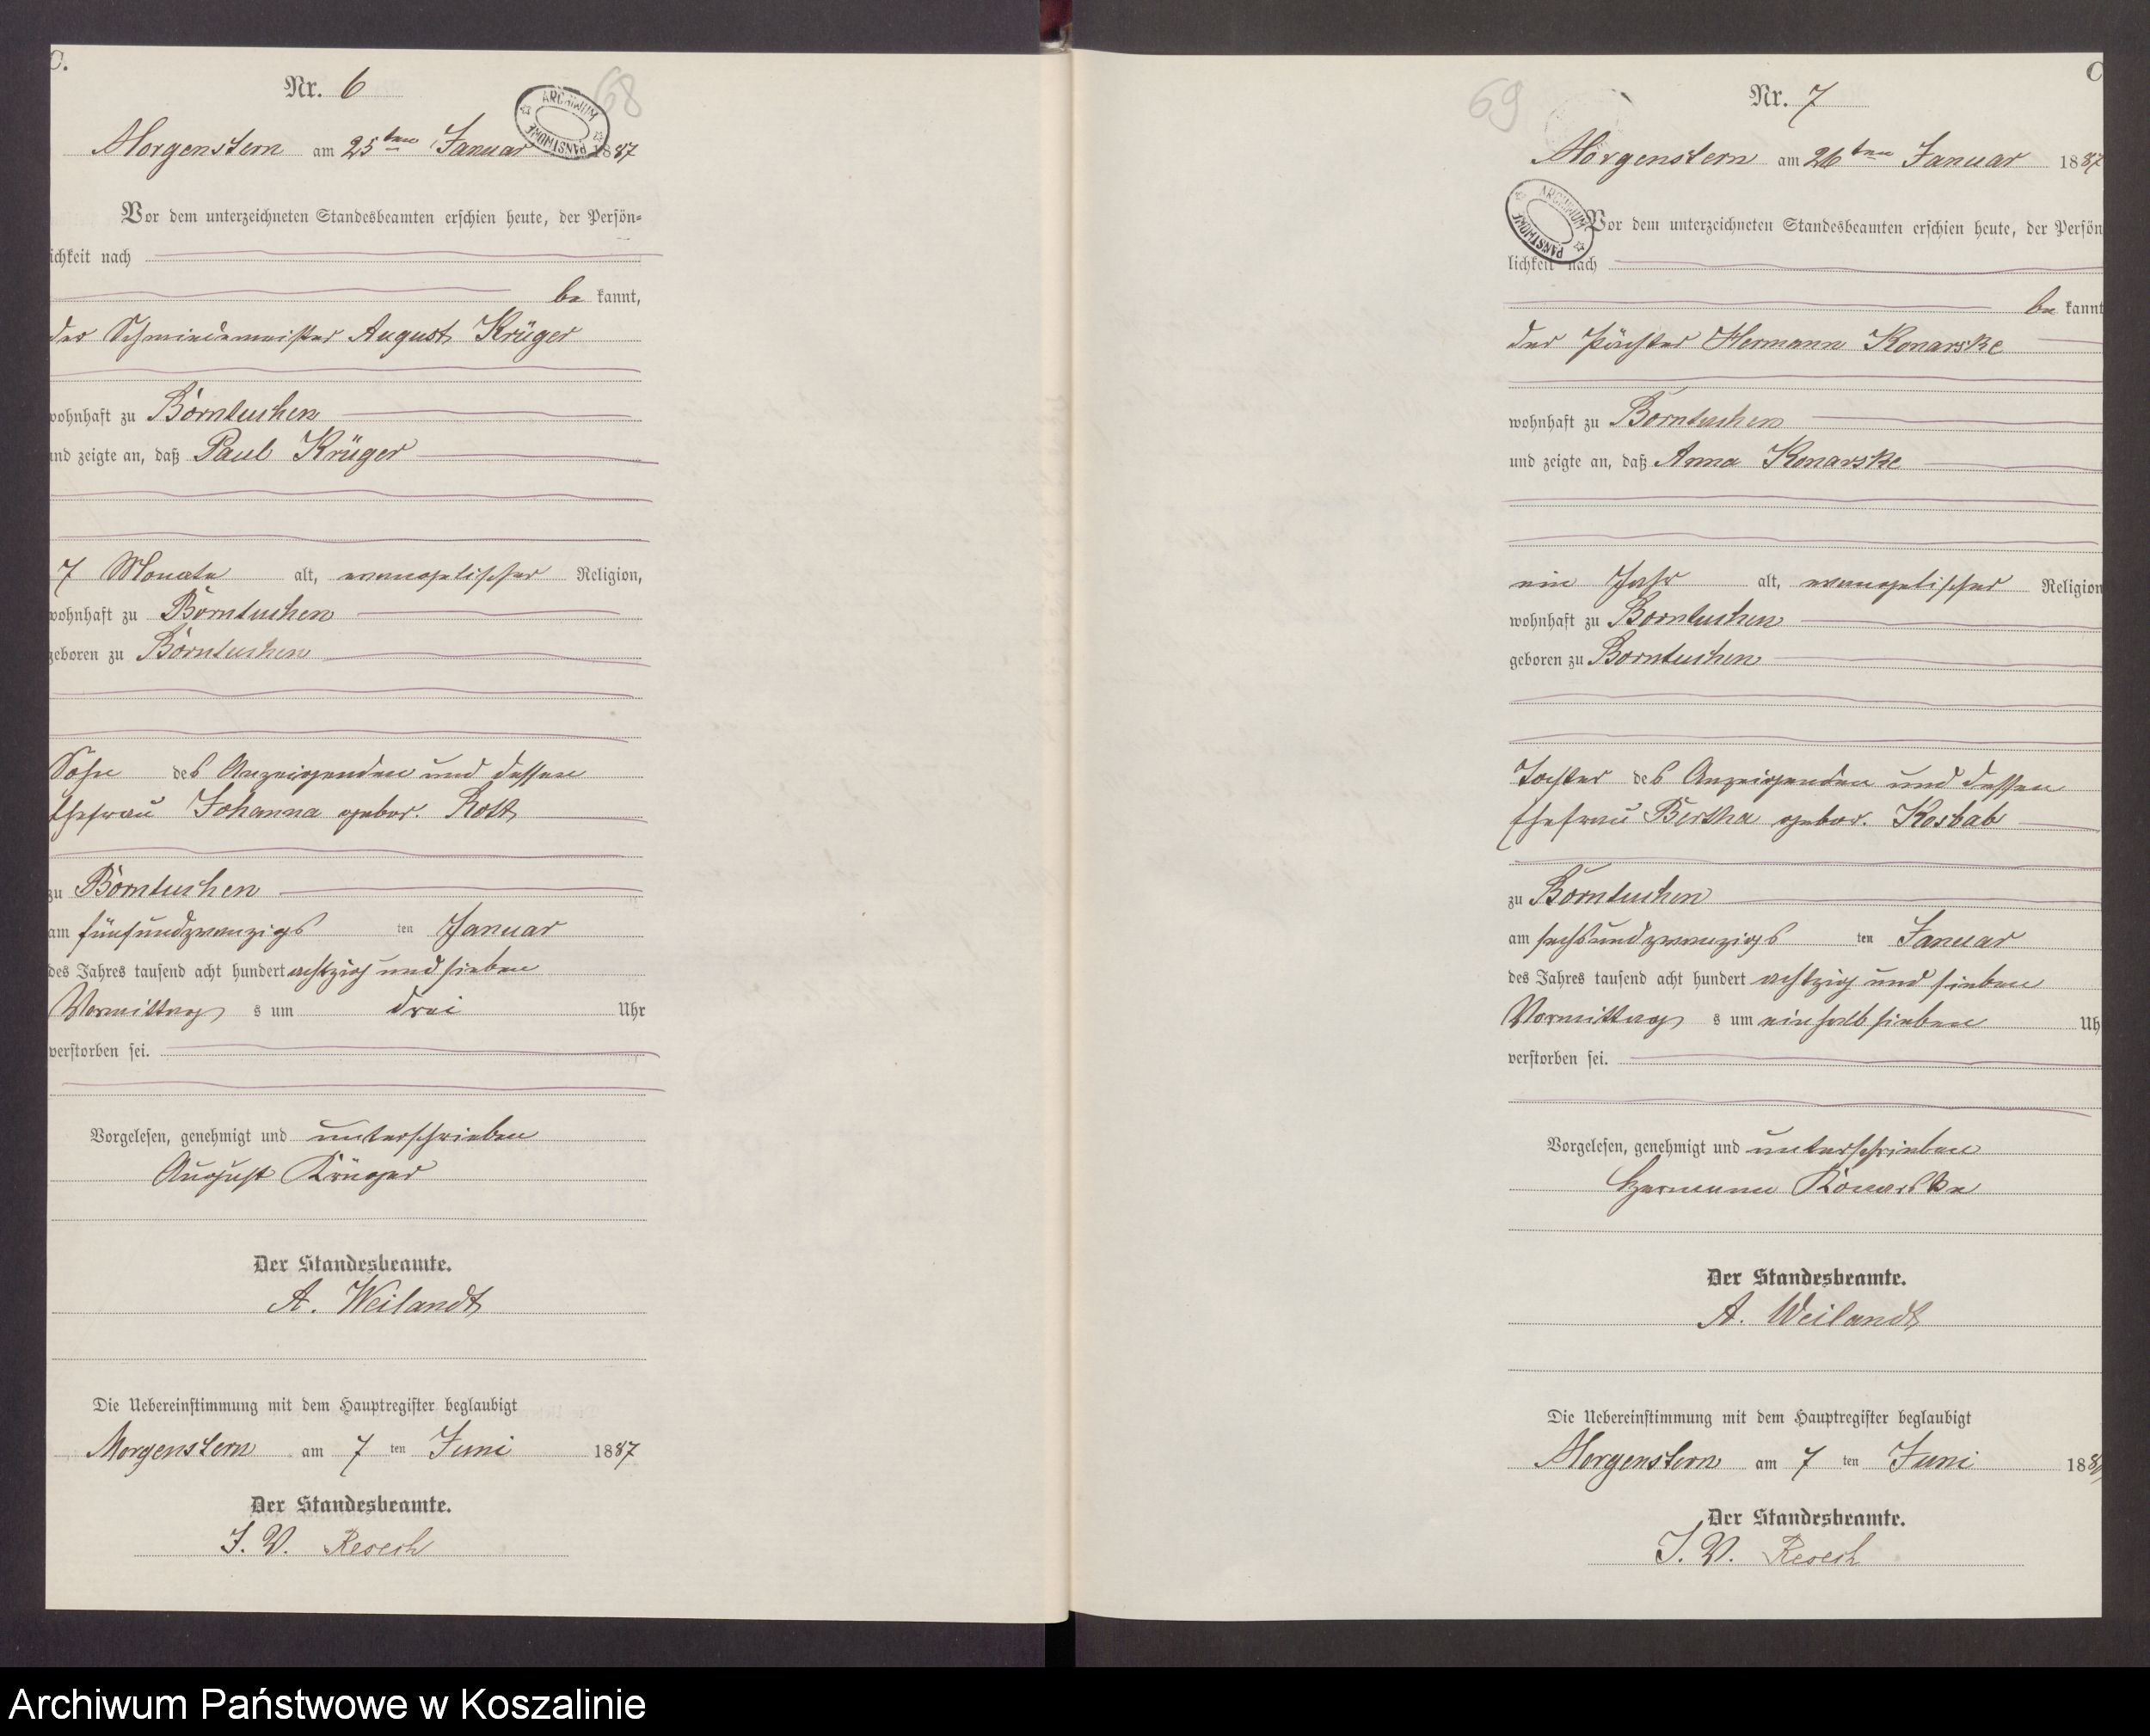 C.
Nr. 6
68
ARCHIWUM PAŃSTWOWE
Morgenstern am 25ten Januar 1887
Vor dem unterzeichneten Standesbeamten erschien heute, der Persön=
lichkeit nach
be kannt,
der Schmiedemeister August Krüger
wohnhaft zu Börntuchen
und zeigte an, daß Paul Krüger
7 Monate alt, evangelischer Religion,
wohnhaft zu Börntuchen
geboren zu Börntuchen
Sohn des Anzeigenden und dessen
Ehefrau Johanna gebor. Rott
zu Börntuchen
am fünfundzwanzigsten Januar
des Jahres tausend acht hundert achtzig und sieben
Vormittags um drei Uhr
verstorben sei.
Vorgelesen, genehmigt und unterschrieben
August Krüger
Der Standesbeamte.
A. Weilandt
Die Uebereinstimmung mit dem Hauptregister beglaubigt
Morgenstern am 7ten Juni 1887
Der Standesbeamte.
J. V. Resech
C
Nr. 7
69
Morgenstern am 26ten Januar 1887
ARCHIWUM PAŃSTWOWE
Vor dem unterzeichneten Standesbeamten erschien heute, der Persön
lichkeit nach
be kannt
der Pächter Hermann Konarske
wohnhaft zu Borntuchen
und zeigte an, daß Anna Konarske
ein Jahr alt, evangelischer Religion
wohnhaft zu Borntuchen
geboren zu Borntuchen
Tochter des Anzeigenden und dessen
Ehefrau Bertha gebor. Kosbab
zu Borntuchen
am sechsundzwanzigsten Januar
des Jahres tausend acht hundert achtzig und sieben
Vormittags um einhalb sieben Uh
verstorben sei.
Vorgelesen, genehmigt und unterschrieben
Hermann Konarske
Der Standesbeamte.
A. Weilandt
Die Uebereinstimmung mit dem Hauptregister beglaubigt
Morgenstern am 7ten Juni 1887
Der Standesbeamte.
J. V. Resech
Archiwum Państwowe w Koszalinie